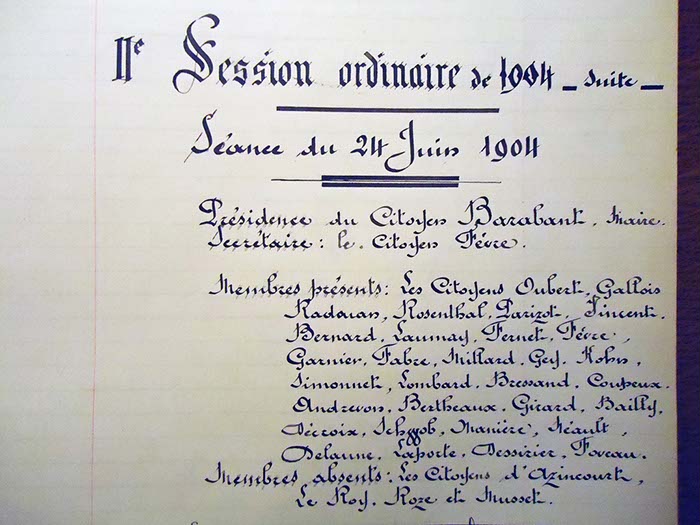 IIe Session ordinaire de 1904 _ suite _
Séance du 24 Juin 1904
Présidence du Citoyen Barabant, Maire.
Secrétaire: le Citoyen Fèvre.
Membres présents: Les Citoyens Oubert, Gallois
Radouan, Rosenthal, Parizot, Vincent,
Bernard, Launay, Fernet, Fèvre,
Garnier, Fabre, Millard, Gey, Kohn,
Simonnet, Lombard, Bressand, Coupeux.
Andrevon, Bertheaux, Girard, Bailly,
Décroix, Schwob, Manière, Néault,
Delaune, Laporte, Dessirier, Foveau.
Membres absents: Les Citoyens d'Azincourt,
Le Roy, Roze et Musset.